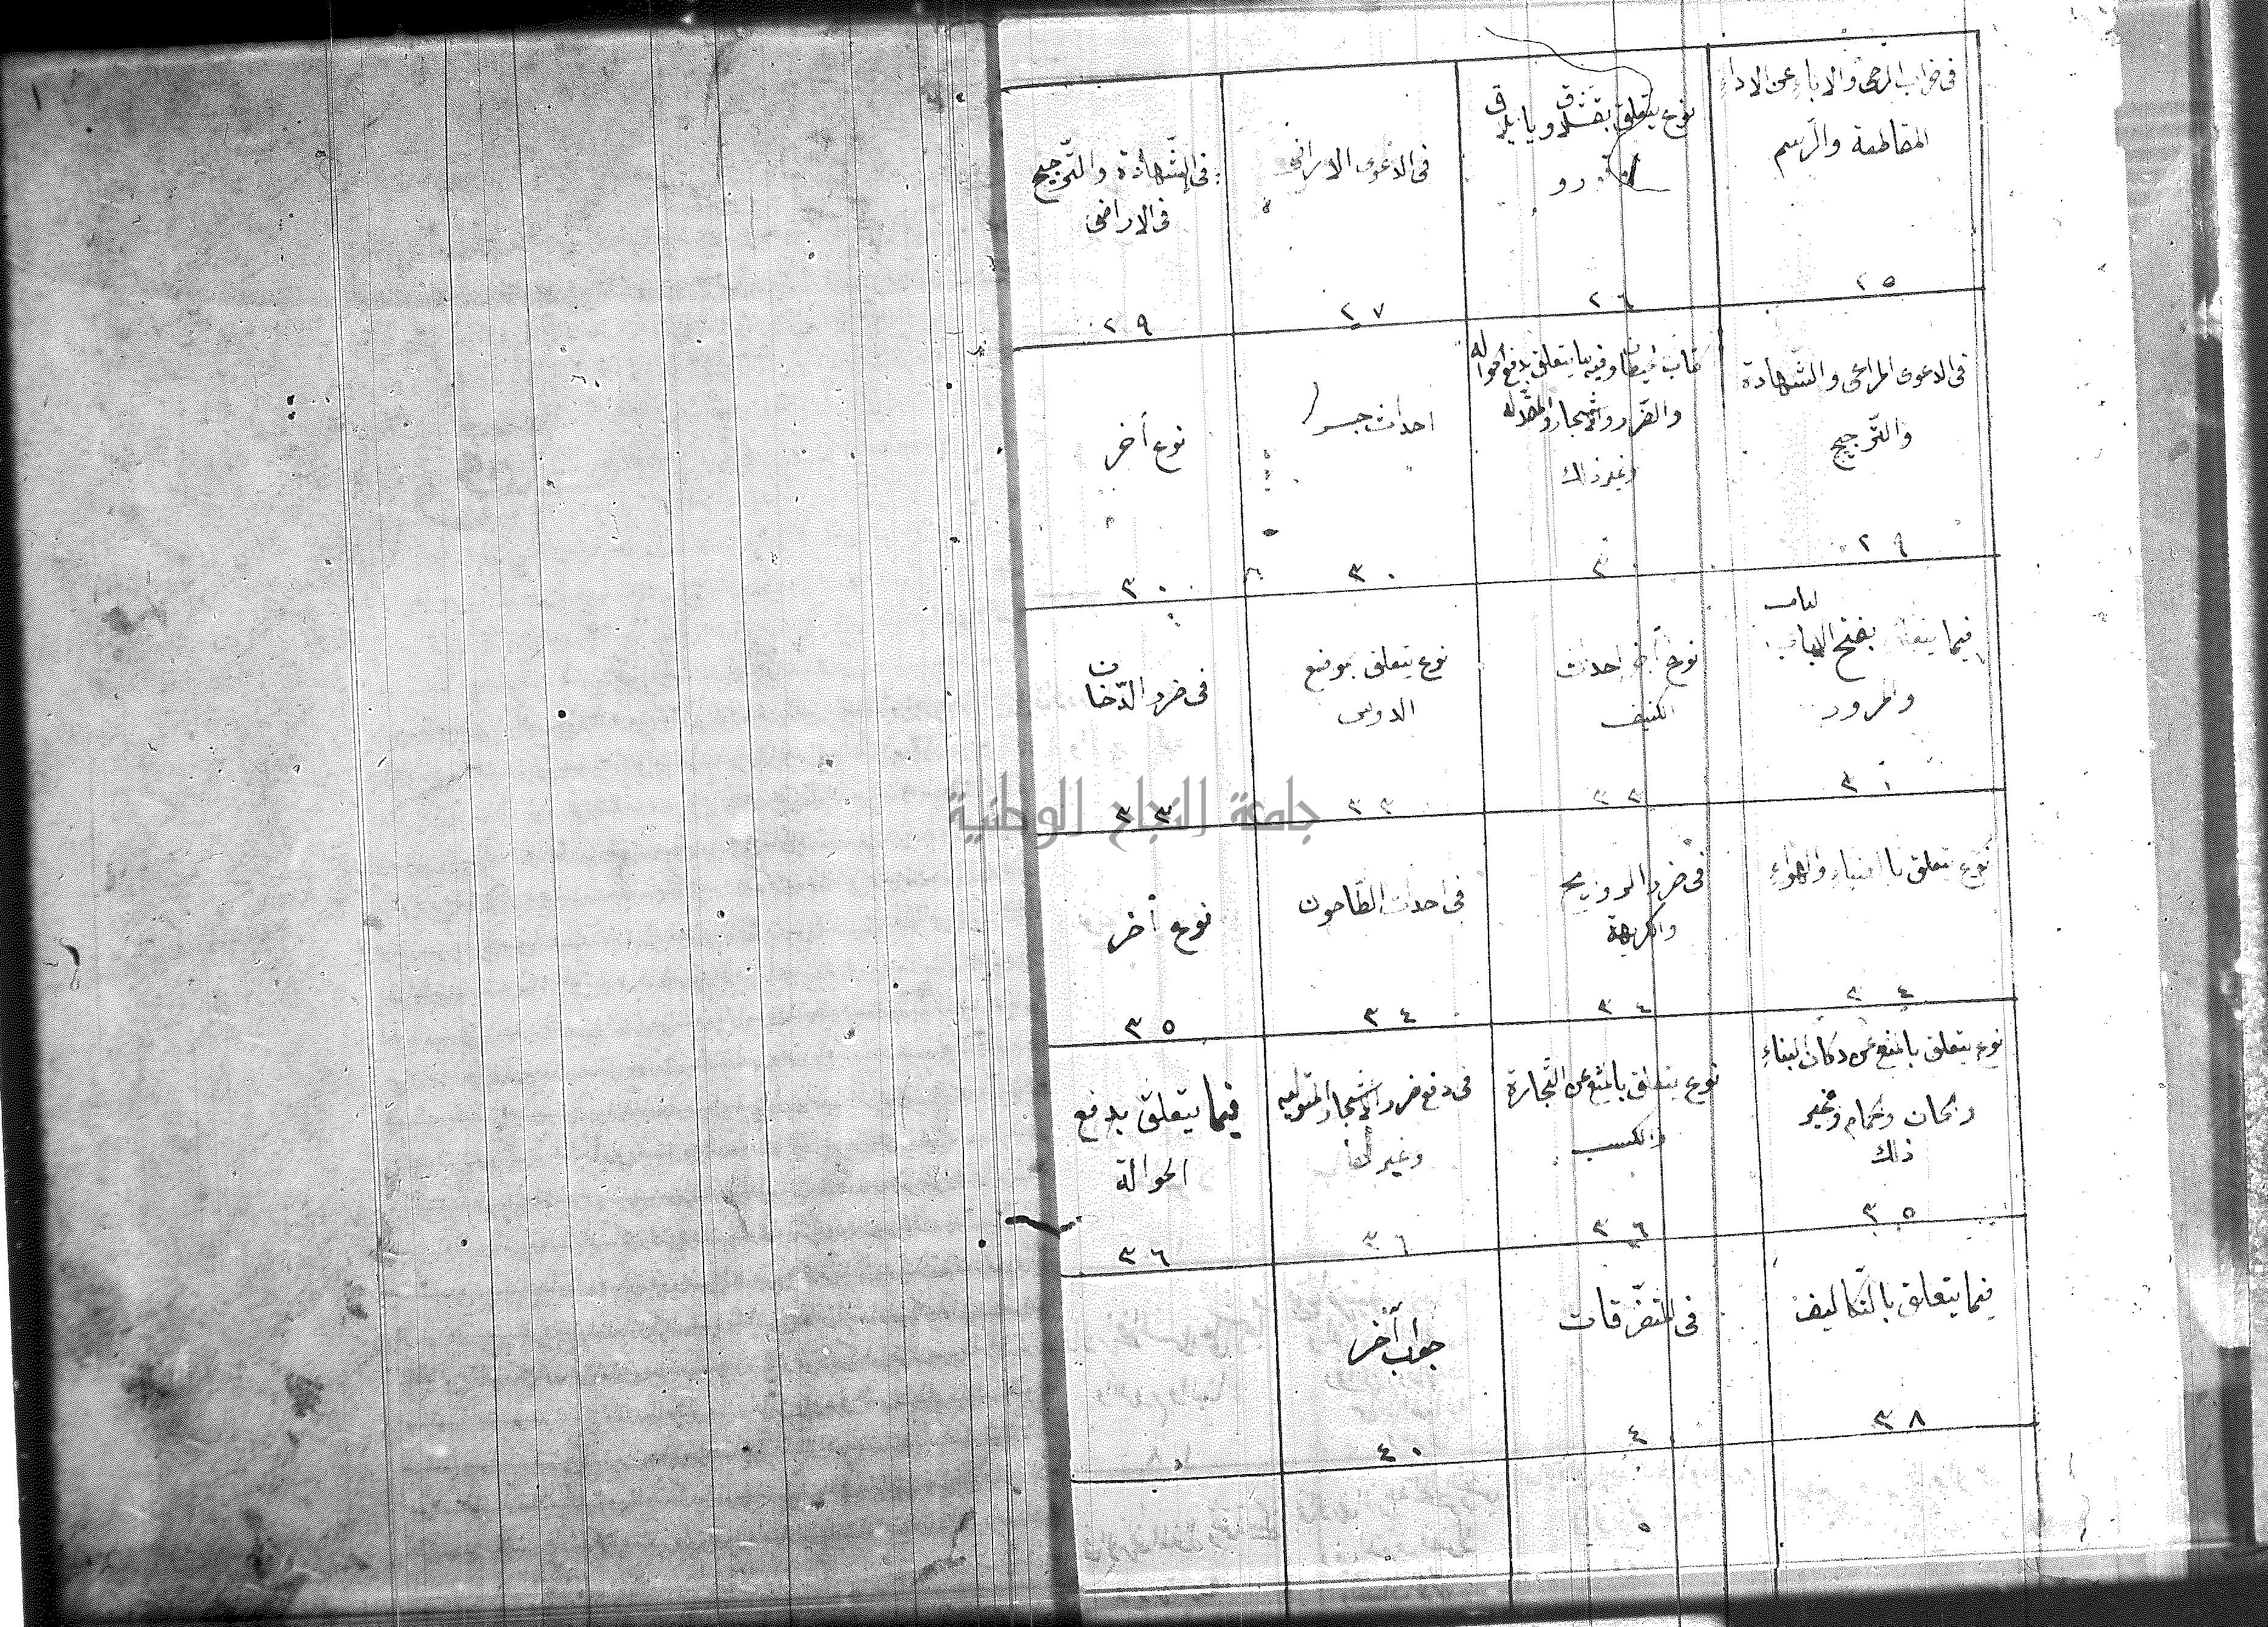 فى خراب الرحى والاباء عن الاداء
المقاطعة والرسم
٢٥
نوع يتعلق
٢٦
فى الدعوى الاراضى
٢٧
فى الشهادة والترجيح
فى الاراضى
٢٩
فى الدعوى المراعى والشهادة
والترجيح
٢٩
كتاب حيطان وفيه ما يتعلق بدفع الحواله
والضرر والاشجار
وغير ذلك
٣٠
احداث جسر
٣٠
نوع أخر
٣٠
فيما يتعلق بفتح الباب
والمرور
٣١
نوع أخر احداث
الكنيف
٣٣
نوع يتعلق بوضع
٣٣
فى ضرر الدّخان
٣٣
نوع يتعلق والهواء
٣٤
فى ضرر
والكريهة
٣٤
فى احداث الطّاحون
٣٤
نوع أخر
٣٥
نوع يتعلق بالمنع عن دكان البناء
وخان وحمام وغير
ذلك
٣٥
نوع يتعلق بالمنع عن التّجارة
والكسب
٣٦
فى دفع ضرر الاشجار
وغير
٣٦
فيما يتعلق بدفع
الحوالة
٣٦
فيما يتعلق بالتّكاليف
٣٨
فى المتفرّقات
٤٠
جواب أخر
٤٠
جامعة النجاح الوطنية